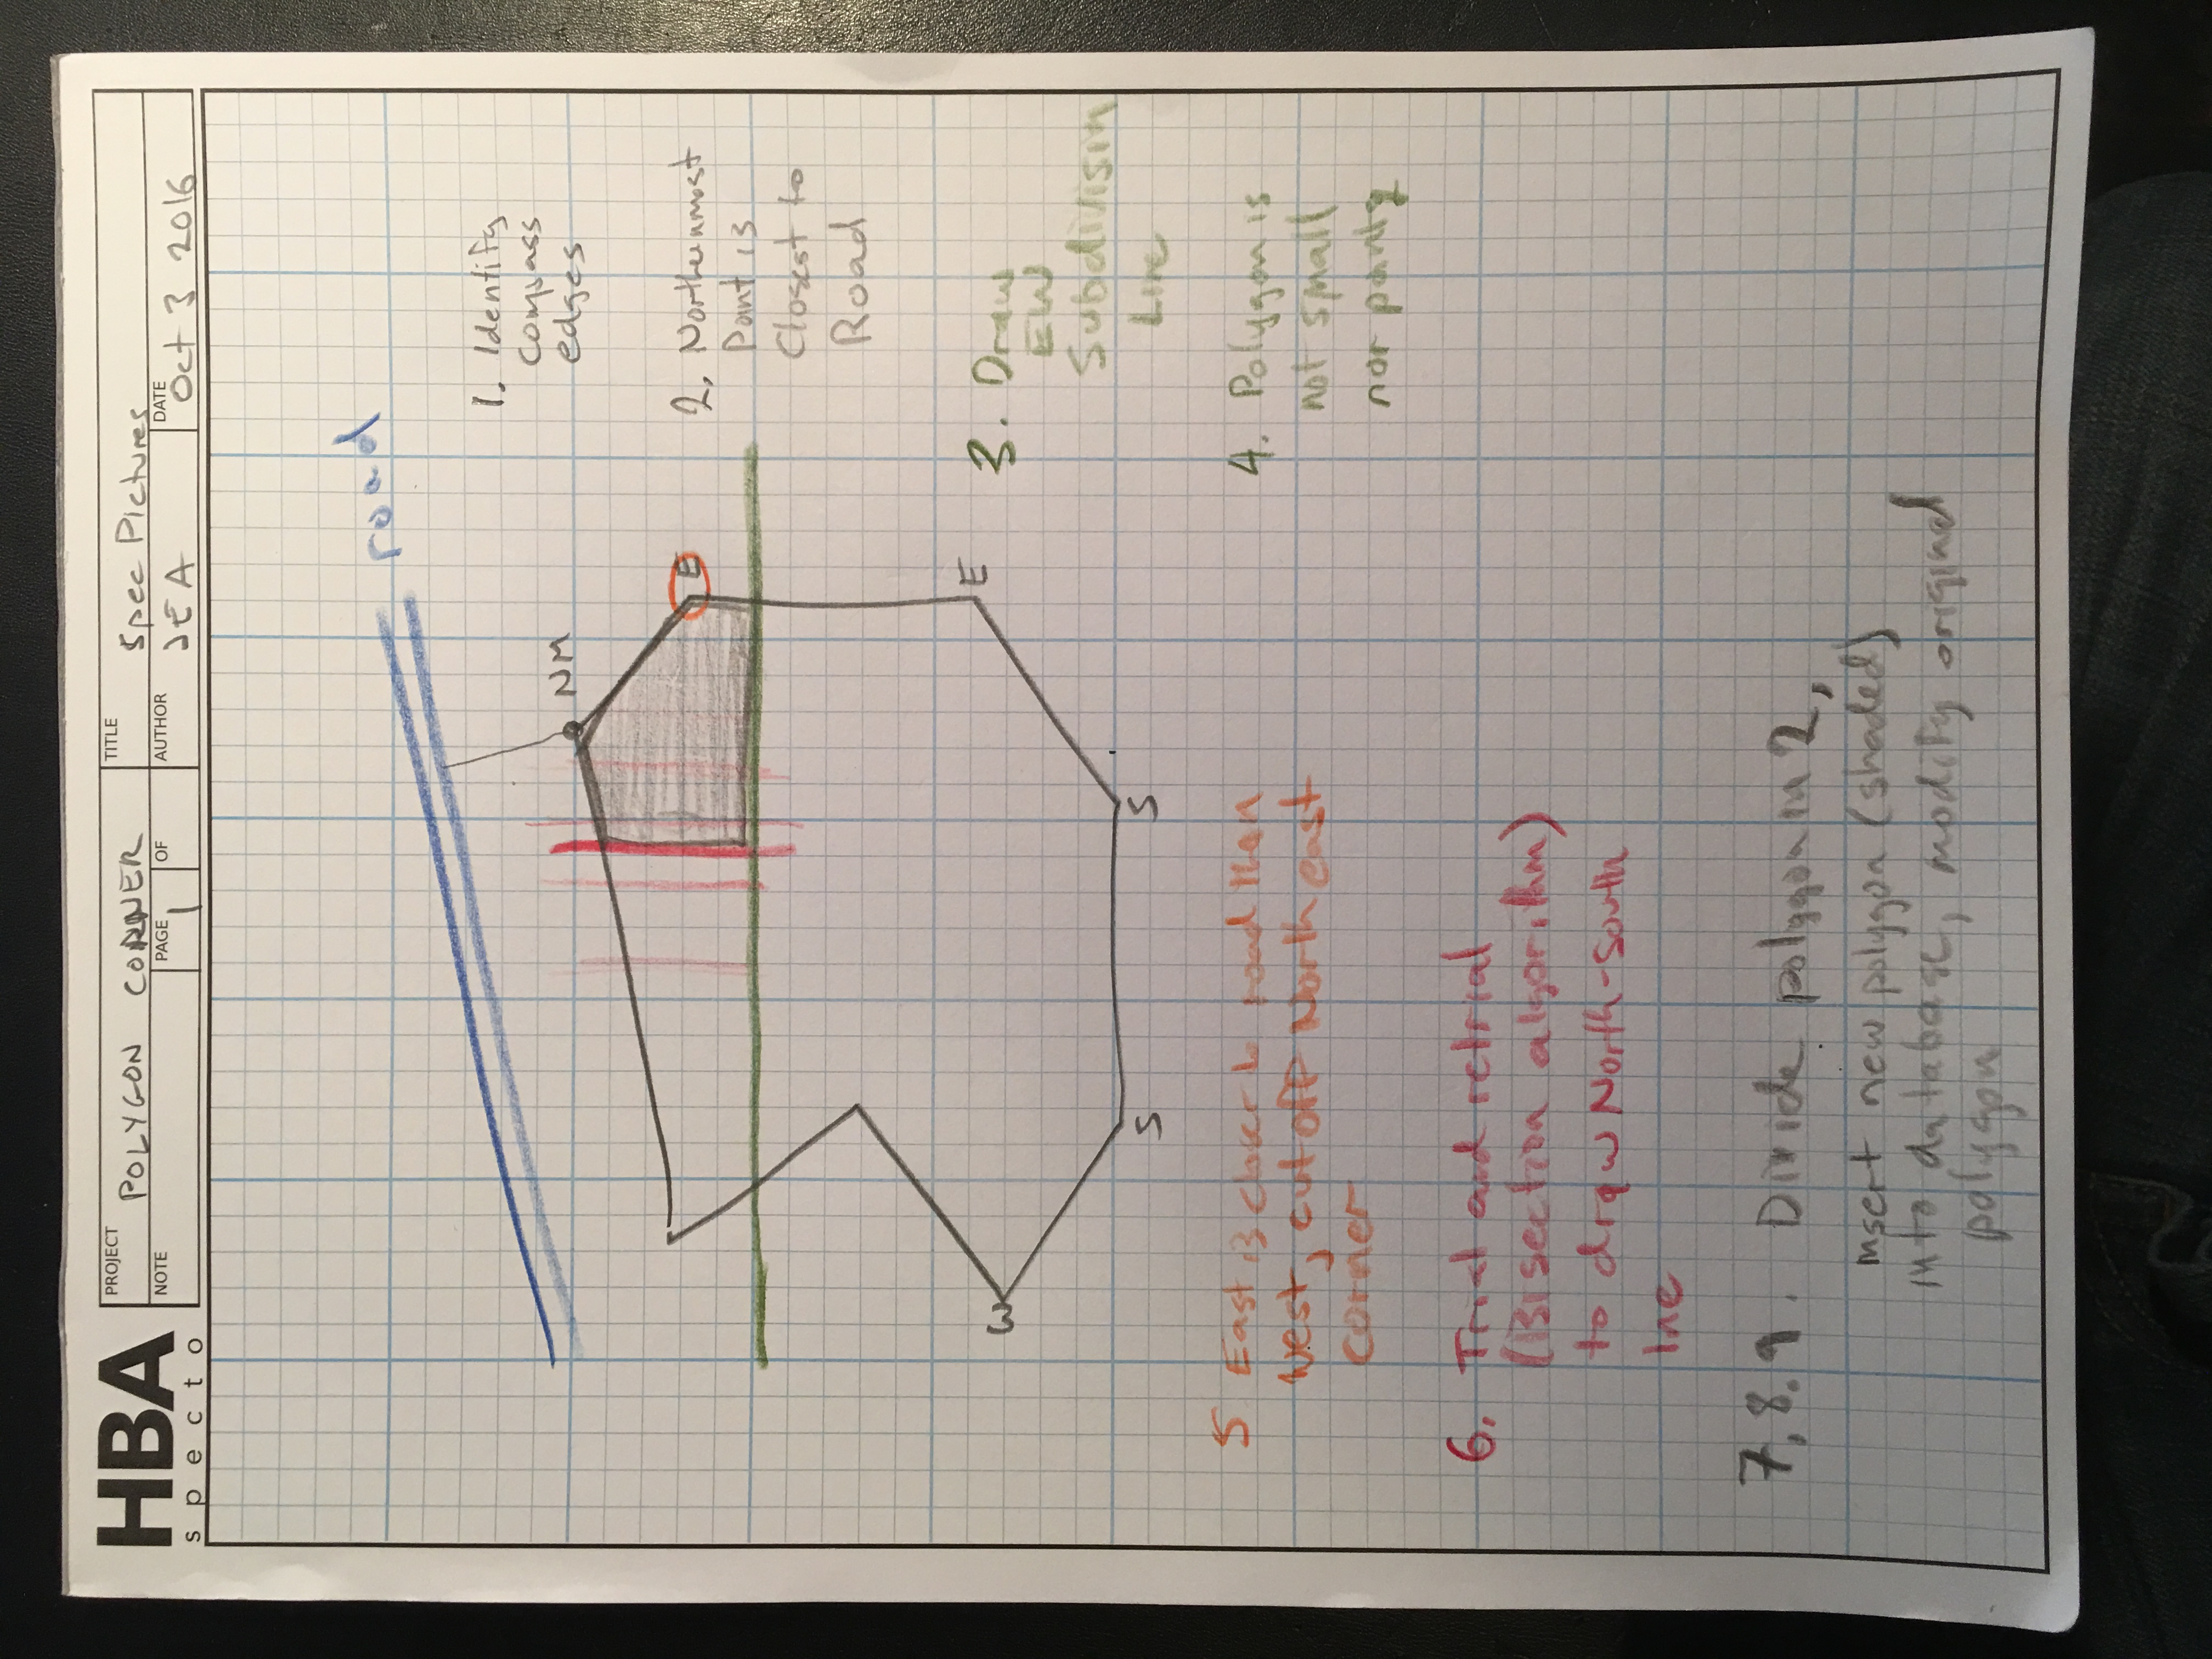 HBA
specto
PROJECT
POLYGON CORNER
TITLE
Spec Pictures
NOTE
PAGE
1
OF
AUTHOR
JEA
DATE
Oct 3 2016
road
NM
E
W
E
S
S
1. Identify
compass
edges
2. Northernmost
Point is
Closest to
Road
3. Draw
EW
Subdivision
Line
4. Polygon is
not small
nor pointy
5 East is closer to road than
West, cut off North east
corner
6. Trial and retrial
(Bisection algorithm)
to draw North-South
line
7, 8. 9. Divide polygon in 2,
insert new polygon (shaded)
into database, modify original
polygon